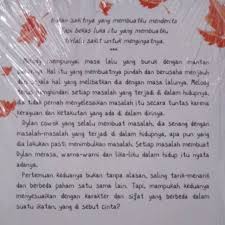 Bukan sakitnya yang membuatku menderita
Tapi bekas luka itu yang membuatku
terlalu sakit untuk mengingatnya.
***
Melody mempunyai masa lalu yang buruk dengan mantan
nya. Hal itu yang membuatnya pindah dan berusaha menjauh
dari segala hal yang melibatkan dia dengan masa lalunya. Melody
menghindari setiap masalah yang terjadi di dalam hidupnya,
dia tidak pernah menyelesaikan masalah itu secara tuntas karena
keraguan dan ketakutan yang ada di dalam dirinya.
Dylan cowok yang selalu membuat masalah, dia senang dengan
masalah-masalah yang terjadi di dalam hidupnya, apa pun yang
dia lakukan pasti menimbulkan masalah. Setiap masalah membuat
Dylan merasa, warna-warni dan lika-liku dalam hidup itu nyata
adanya.
Pertemuan keduanya bukan tanpa alasan, saling tarik-menarik
dan berbeda paham satu sama lain. Tapi, mampukah keduanya
menyesuaikan dengan karakter dan sifat yang berbeda dalam
suatu ikatan, yang di sebut cinta?